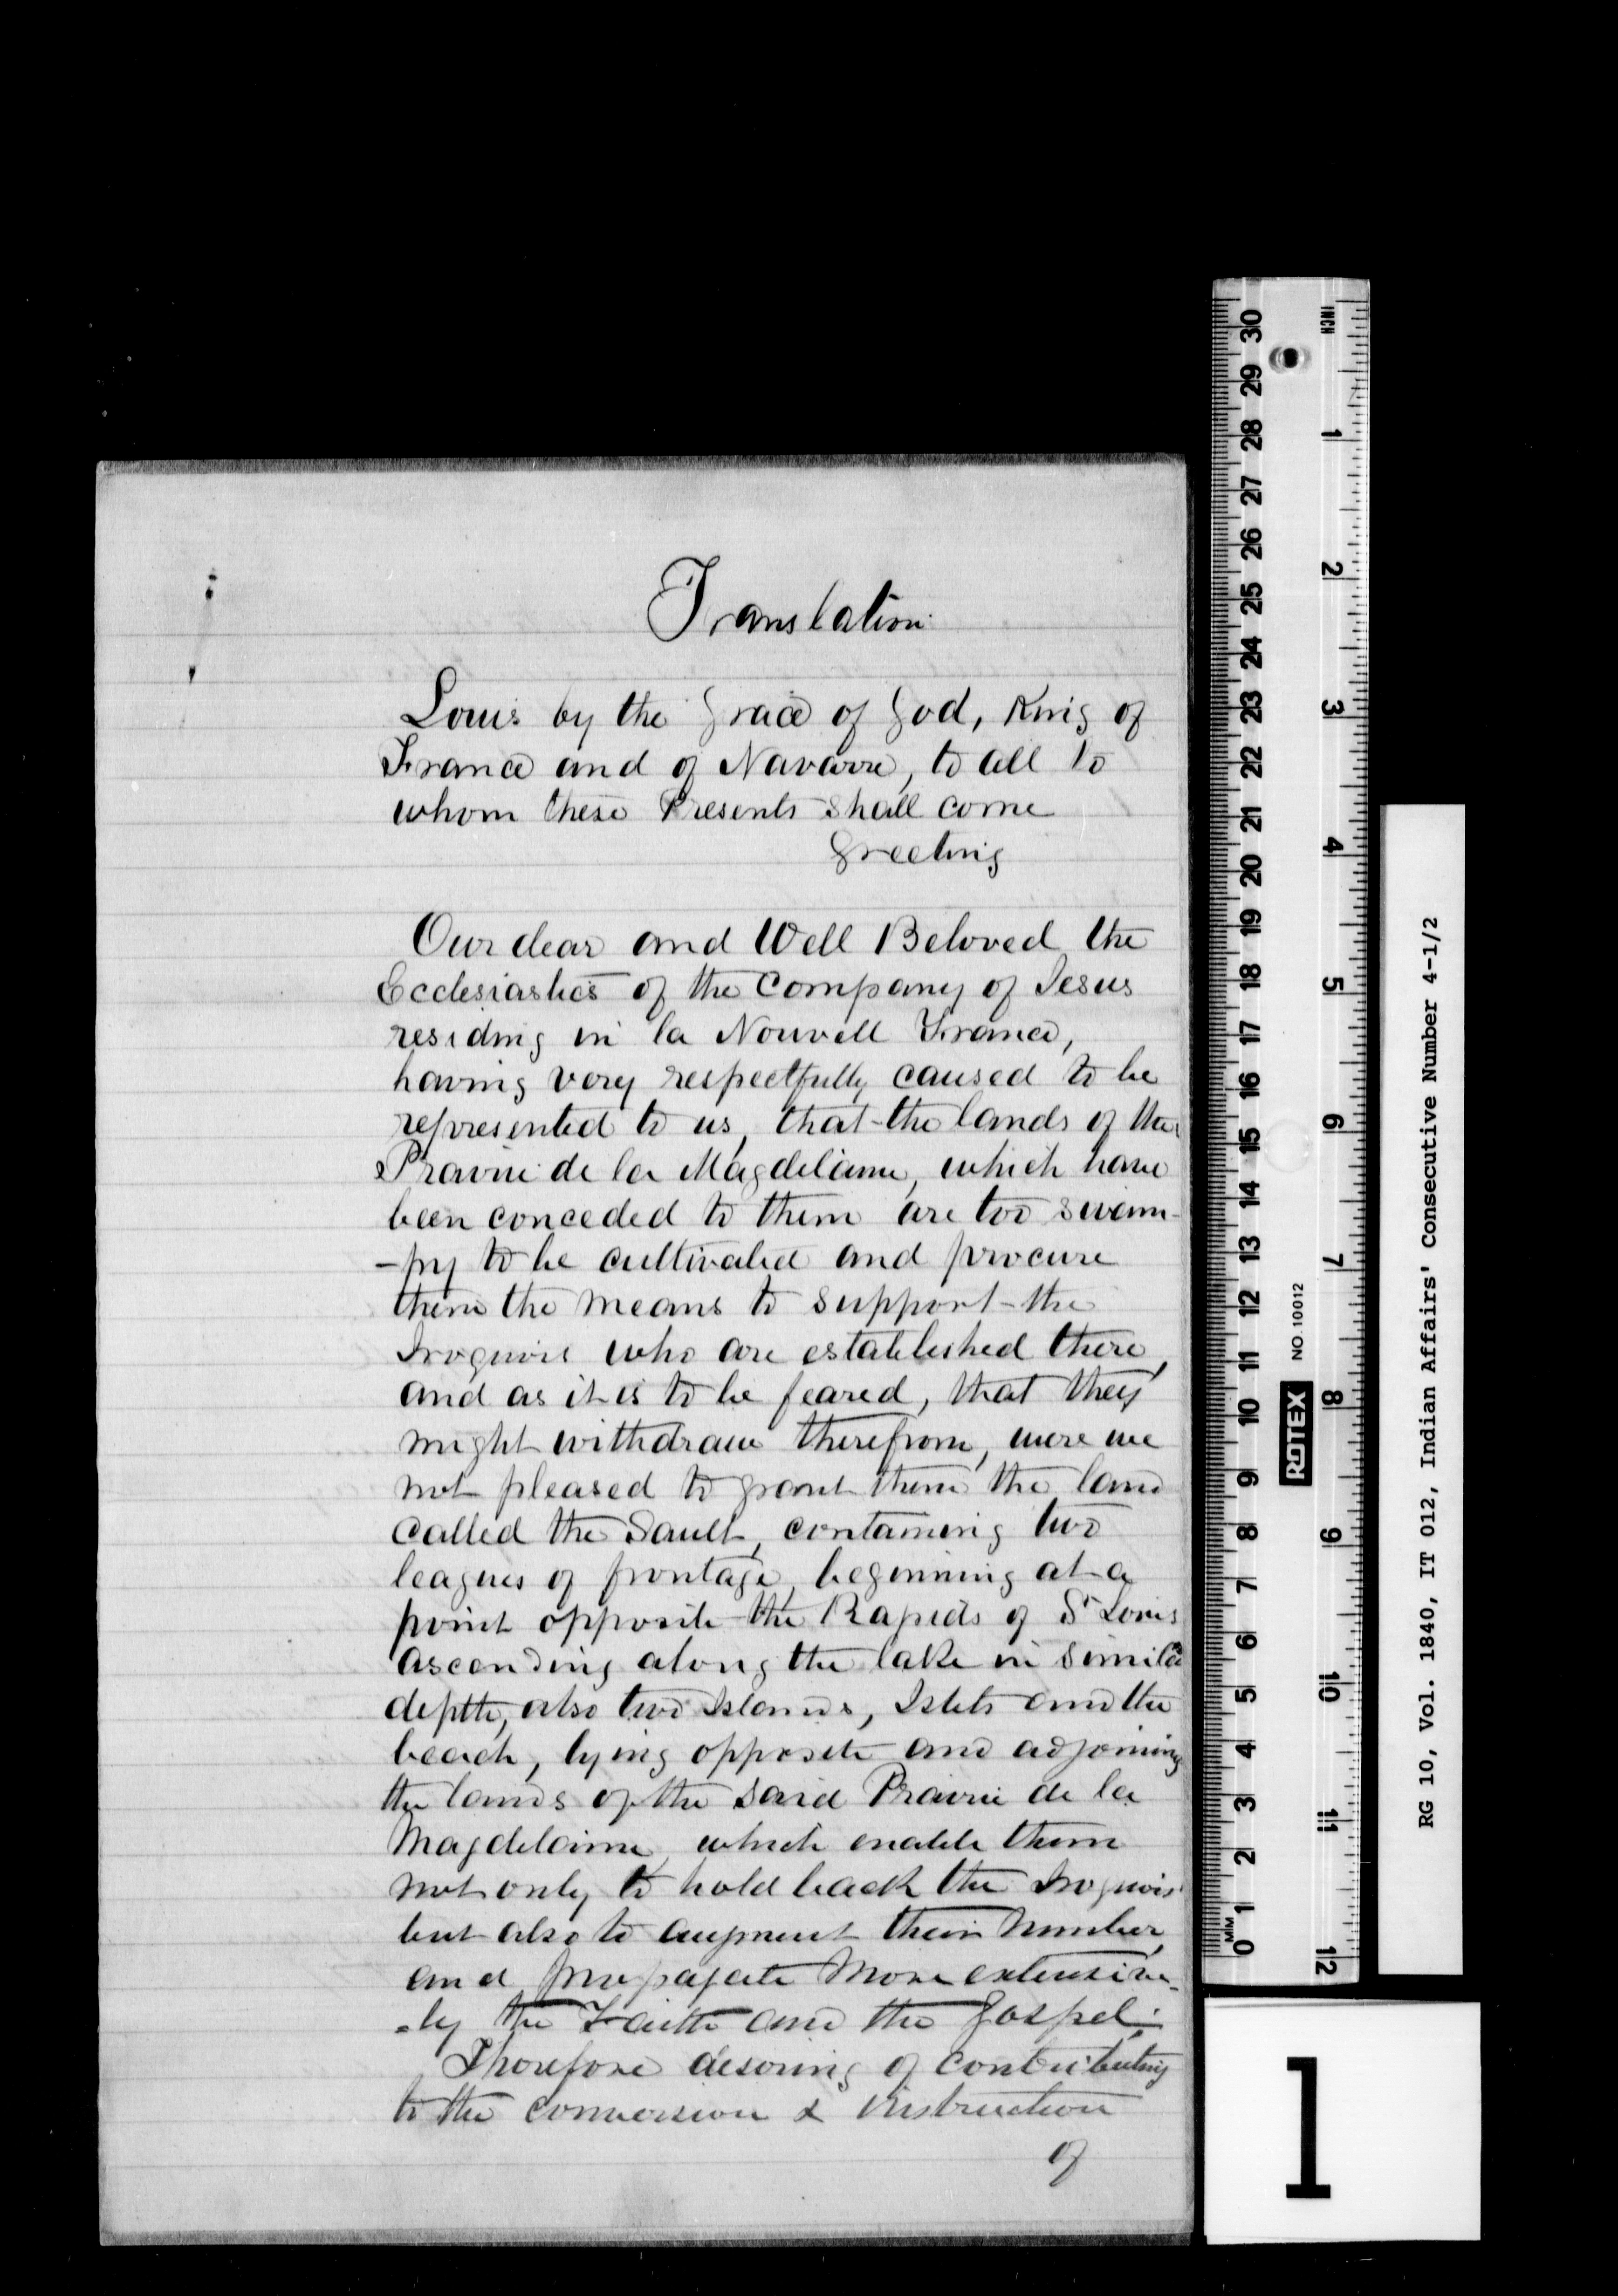 Translation
Louis by the Grace of God, King of
France and of Navarre, to all to
whom these Presents shall come
Greeting
Our dear and Well Beloved the
Ecclesiastics of the Company of Jesus
residing in la Nouvell France,
having very respectfully caused to be
represented to us, that the lands of the
Prairie de la Magdelaine, which have
been conceded to them are too swam-
-py to be cultivated and procure
them the means to support the
Iroquois who are established there,
and as it is to be feared, that they
might withdraw therefrom, were we
not pleased to grant them the land
called the Sault, containing two
leagues of frontage, beginning at a
point opposite the Rapids of St Louis
ascending along the lake in similar
depth, also two Islands, Islets and the
beach, lying opposite and adjoining
the lands of the said Prairie de la
Magdelaine, which enable them
not only to hold back the Iroquois
but also to augment their number,
and propagate more extensive-
-ly the Faith and the Gospel.
Therefore desiring of contributing
to the conversion & instruction
of
INCH
30 29 28 27 26 25 24 23 22 21 20 19 18 17 16 15 14 13 12 11 10 9 8 7 6 5 4 3 2 1 0
MM
1 2 3 4 5 6 7 8 9 10 11 12
NO. 10012
ROTEX
RG 10, Vol. 1840, IT 012, Indian Affairs' Consecutive Number 4-1/2
1